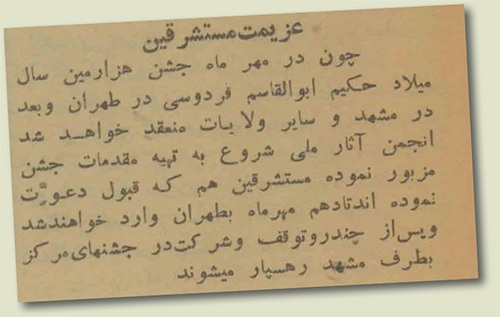 عزیمت مستشرقین
چون در مهر ماه جشن هزارمین سال
میلاد حکیم ابوالقاسم فردوسی در طهران وبعد
در مشهد و سایر ولایات منعقد خواهد شد
انجمن آثار ملی شروع به تهیه مقدمات جشن
مزبور نموده مستشرقین هم که قبول دعوت
نموده اندتادهم مهرماه بطهران وارد خواهندشد
وپس‌از چندروتوقف وشرکت‌در جشنهای‌مرکز
بطرف مشهد رهسپار میشوند